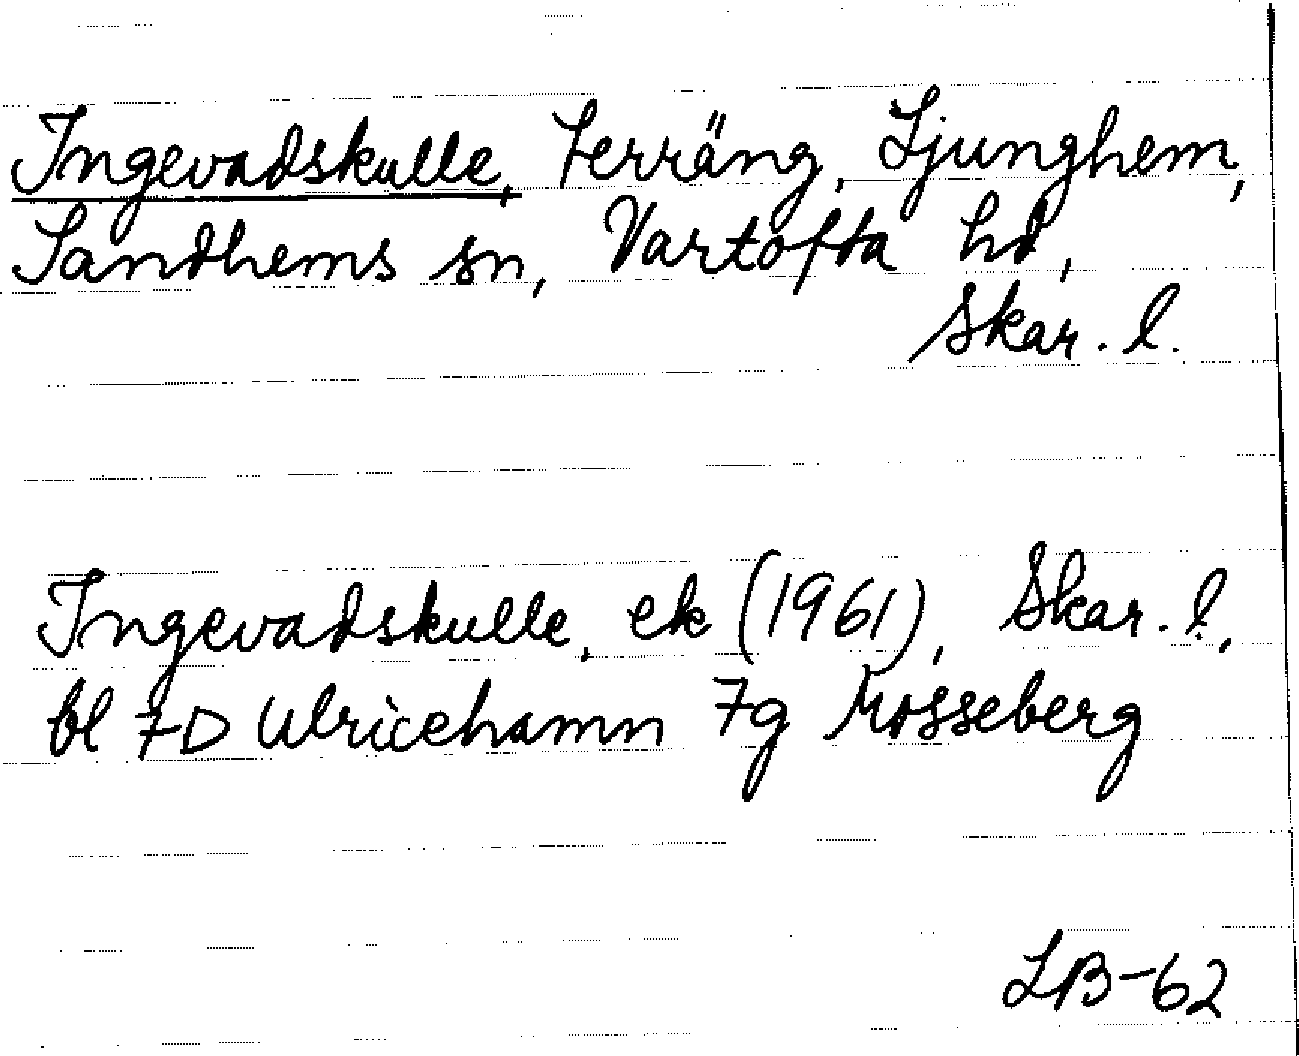 Ingevadskulle, terräng, Ljunghem,
Sandhems sn, Vartofta hd,
Skar. l.
Ingevadskulle, ek (1961), Skar. l.,
bl 7D Ulricehamn 7g Mosseberg
LB-62